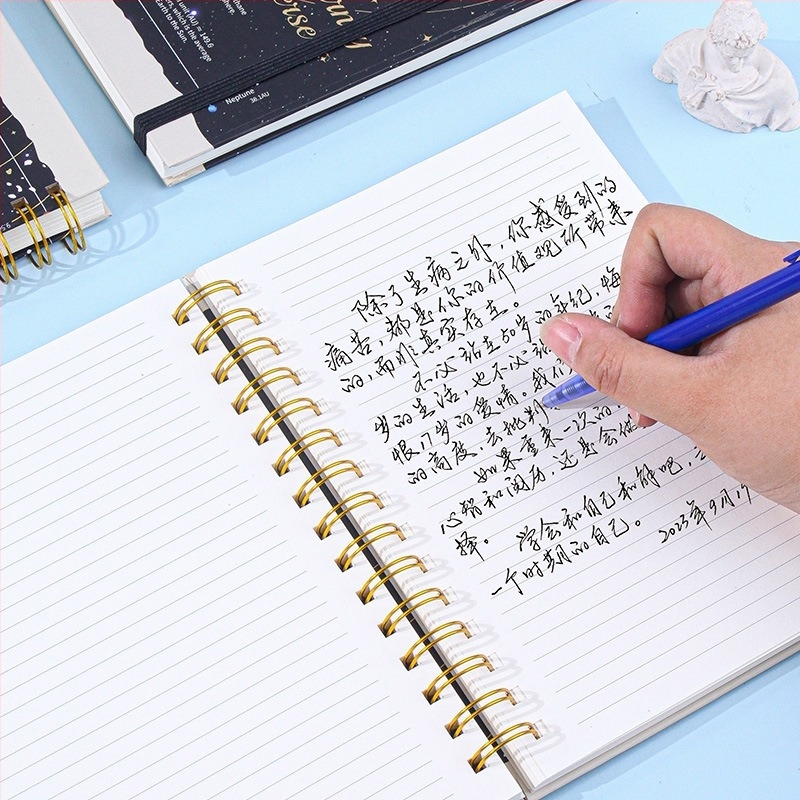 thane
phere.
Tune (AU) = 149.6
ers, which is the average
Earth to the Sun.
Neptune
38.1AU
erse
除了生病之外，你感受到的
痛苦，都是你的价值观所带来
的，而非真实存在。
不必站在50岁的年纪，悔
岁的生活，也不必站
恨17岁的爱情。我们
的高度，去批判
如果重来一次的
心智和阅历，还是会做
择。
学会和自己和解吧，
一个时期的自己。
2023年9月17